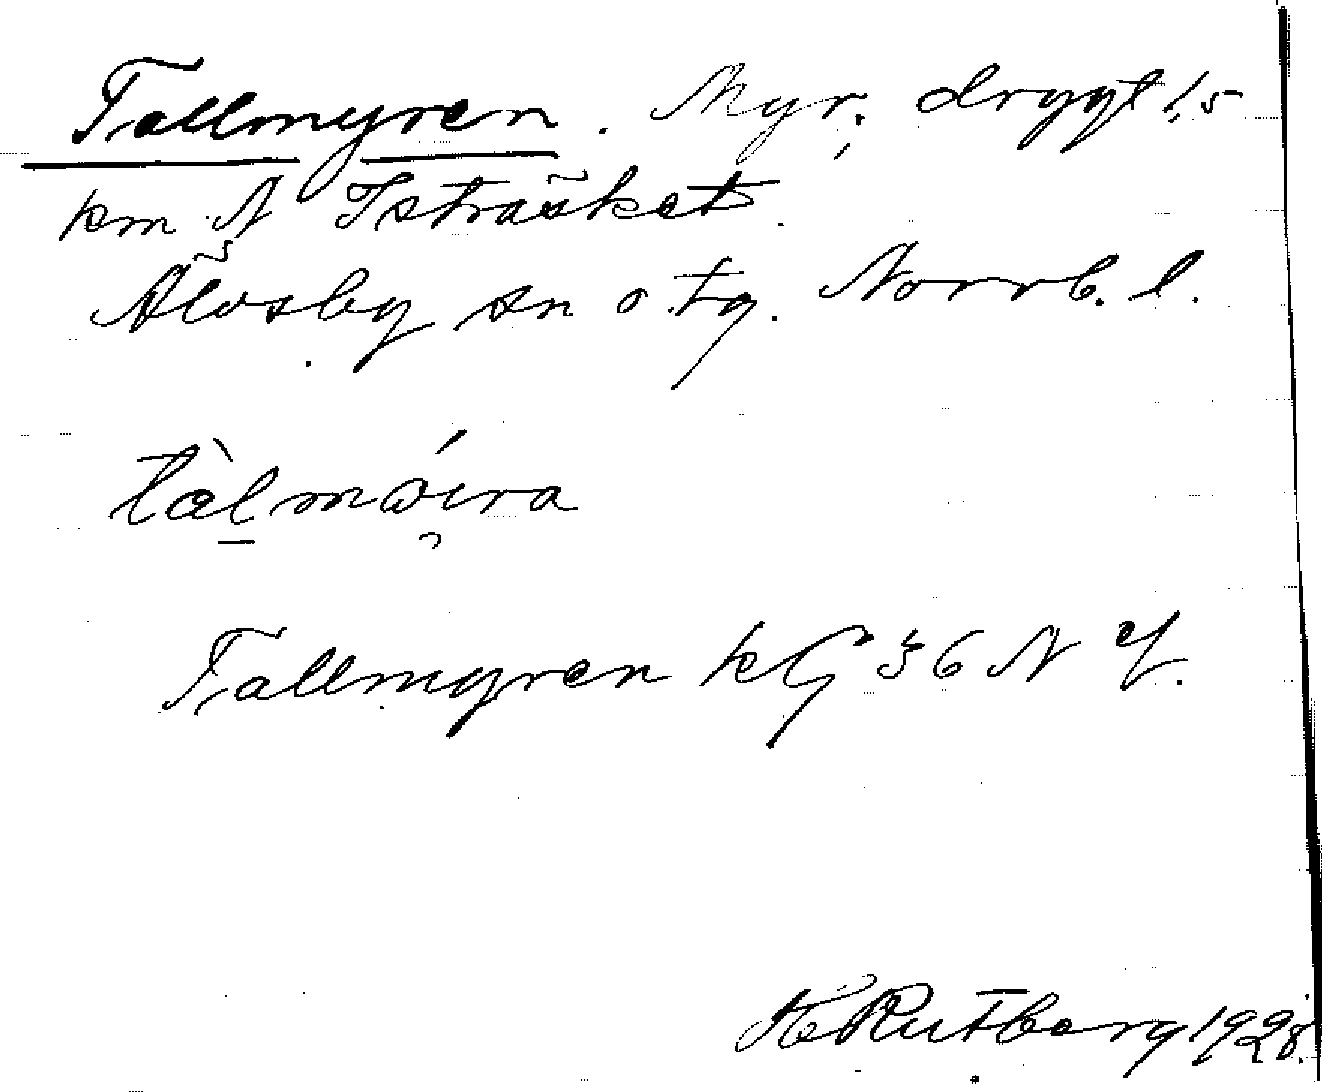 Tallmyren. Myr, drygt 1,5
km N Isträsket.
Älvsby sn o. tg. Norrb. l.
tàlmǿira
Tallmyren kG 36 N
H Rutberg 1928.